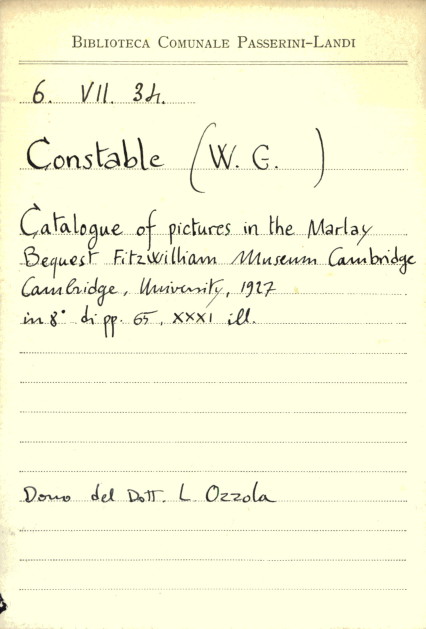 BIBLIOTECA COMUNALE PASSERINI-LANDI
6. VII. 34.
Constable (W. G. )
Catalogue of pictures in the Marlay
Bequest FitzWilliam Museum Cambridge
Cambridge, University, 1927
in 8° di pp. 65, XXXI ill.
Dono del Dott. L. Ozzola